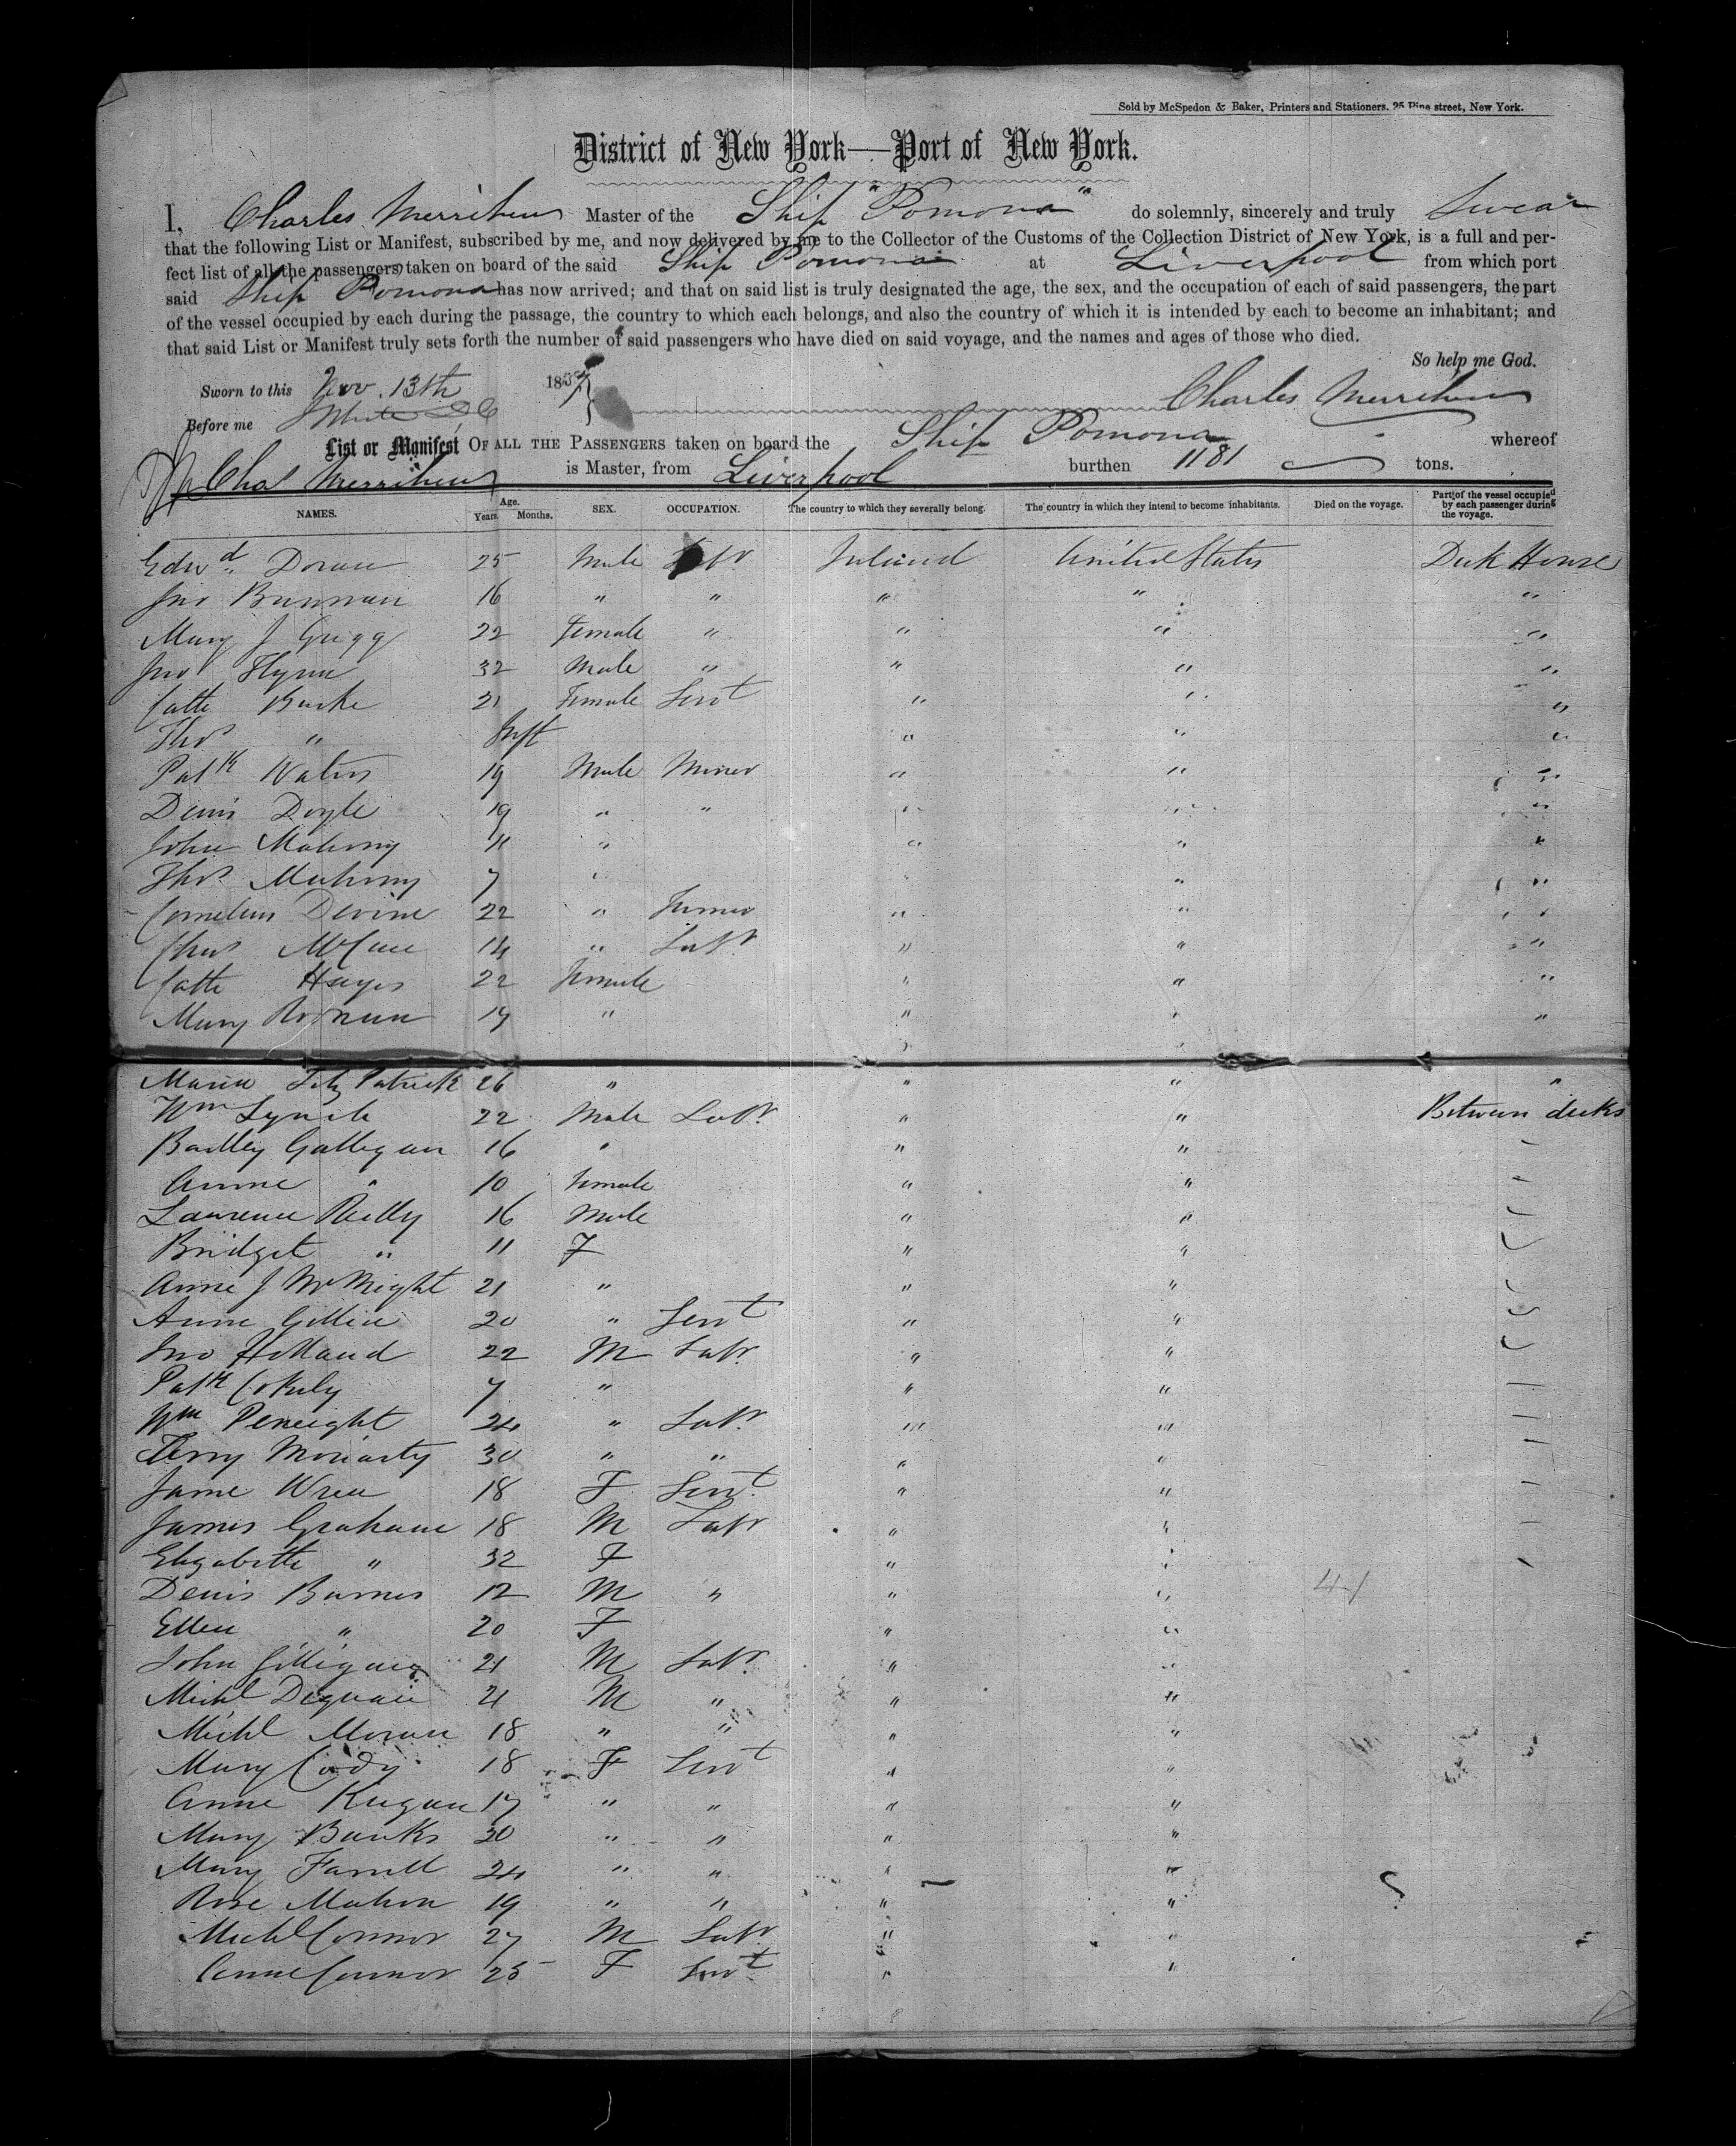 Sold by McSpedon & Baker, Printers and Stationers, 25 Pine street, New York.
District of New York—Port of New York.
I, Charles Merrihew Master of the Ship "Pomona" do solemnly, sincerely and truly Swear
that the following List or Manifest, subscribed by me, and now delivered by me to the Collector of the Customs of the Collection District of New York, is a full and per-
fect list of all the passengers taken on board of the said Ship Pomona at Liverpool from which port
said Ship Pomona has now arrived; and that on said list is truly designated the age, the sex, and the occupation of each of said passengers, the part
of the vessel occupied by each during the passage, the country to which each belongs, and also the country of which it is intended by each to become an inhabitant; and
that said List or Manifest truly sets forth the number of said passengers who have died on said voyage, and the names and ages of those who died.
So help me God.
Sworn to this Nov. 13th 185
Before me Charles Merrihew
List or Manifest OF ALL THE PASSENGERS taken on board the Ship Pomona whereof
Chas Merrihew is Master, from Liverpool burthen 1181 tons.
NAMES. Age. Years. Months. SEX. OCCUPATION. The country to which they severally belong. The country in which they intend to become inhabitants. Died on the voyage. Part of the vessel occupied by each passenger during the voyage.
Edwd. Doran 25 Male Labr Ireland United States Deck House
Jno Brennan 16 " " " " "
Mary J Gregg 22 Female " " " "
Jno Flynn 32 Male " " " "
Cathe Burke 21 Female Servt " " "
Thos " Inft " " "
Patk Waters 19 Male Miner " " "
Denis Doyle 19 " " " " "
John Mahony 11 " " " "
Thos Mahony 7 " " " "
Cornelius Devine 22 " Farmer " " "
Chas McCue 14 " Labr. " " "
Cathe Hayes 22 Female " " "
Mary 19 " " " "
Maria Fitz Patrick 26 " " " "
Wm Lynch 22 Male Labr. " " Between decks
Bartley Gallegan 16 " " "
Anne " 10 Female " "
Lawrence Reilly 16 Male " "
Bridget " 11 F " "
Anne J McNeight 21 " " "
Anne Gillin 20 " Servt " "
Jno Holland 22 M Labr. " "
Patk 7 " " "
Wm Peneight 24 " Labr. " "
Terry Moriarty 30 " " " "
Jane Wren 18 F Servt. " "
James Graham 18 M Labr " "
Elizabeth " 32 F " "
Denis Barnes 12 M " " "
Ellen " 20 F " "
John Gilligan 21 M Labr. " "
Michl Degnan 21 M " " "
Michl Moran 18 " " " "
Mary Cody 18 F Servt " "
Anne Keegan 17 " " " "
Mary Banks 20 " " " "
Mary Farrell 24 " " " "
Rose Mahon 19 " " " "
Michl Connor 27 M Labr. " "
Anne Connor 25 F Servt " "